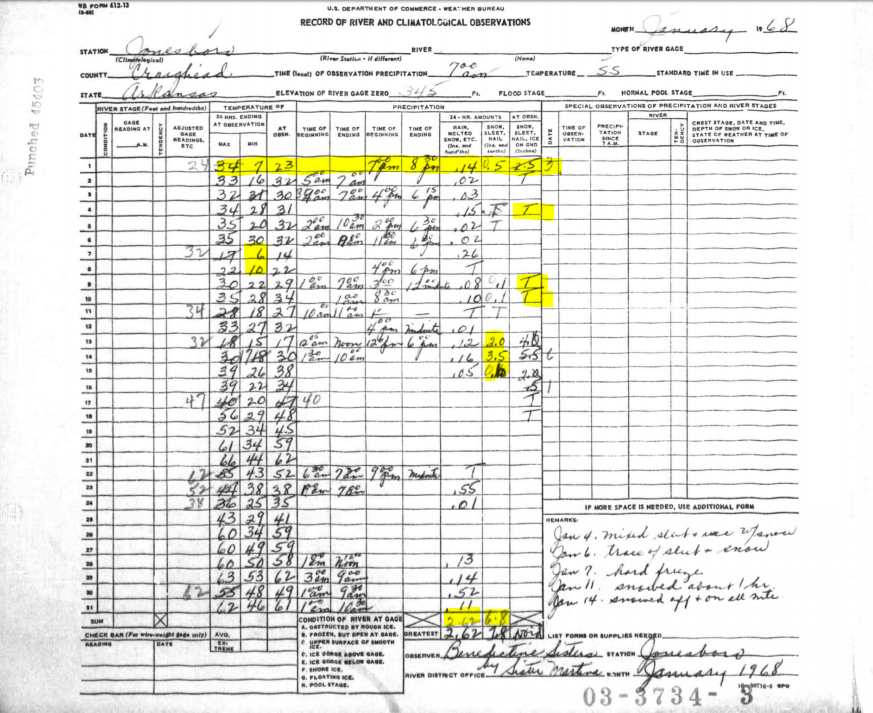 WB FORM 612-13
U.S. DEPARTMENT OF COMMERCE - WEATHER BUREAU
RECORD OF RIVER AND CLIMATOLOGICAL OBSERVATIONS
MONTH January 1968
STATION Jonesboro RIVER TYPE OF RIVER GAGE
(Climatological) (River Station - if different) (Name)
COUNTY Craighead TIME (local) OF OBSERVATION PRECIPITATION 7 00 am TEMPERATURE 55 STANDARD TIME IN USE
STATE Arkansas ELEVATION OF RIVER GAGE ZERO 345 Ft. FLOOD STAGE Ft. NORMAL POOL STAGE Ft.
Punched 45403
RIVER STAGE (Feet and hundredths) TEMPERATURE OF PRECIPITATION SPECIAL OBSERVATIONS OF PRECIPITATION AND RIVER STAGES
DATE CONDITION GAGE READING AT A.M. TENDENCY ADJUSTED GAGE READINGS, ETC 24 HRS. ENDING AT OBSERVATION MAX MIN AT OBSN. TIME OF BEGINNING TIME OF ENDING TIME OF BEGINNING TIME OF ENDING 24 - HR. AMOUNTS RAIN, MELTED SNOW, ETC. (Ins. and hundths) SNOW, SLEET, HAIL (Ins. and tenths) AT OBSN. SNOW, SLEET, HAIL, ICE ON GND (Inches) DATE TIME OF OBSER-VATION PRECIPI-TATION SINCE 7 A.M. RIVER STAGE TEN-DENCY CREST STAGE, DATE AND TIME, DEPTH OF SNOW OR ICE, STATE OF WEATHER AT TIME OF OBSERVATION
1 24 34 7 23 7 pm 8 30 pm .14 0.5 2.5 3
2 33 16 32 5 am 7 am .02 T
3 32 30 7 00 am 4 00 pm 6 15 pm .03
4 34 28 31 .15 T
5 35 20 32 2 00 am 10 30 am 2 00 pm 6 30 pm .02 T
6 35 30 32 2 00 am .02
7 32 17 6 14 .26
8 22 10 22 4 00 pm 6 pm T
9 30 22 29 1 00 am 7 00 am 3 00 .08 0.1 T
10 35 28 34 8 00 am .10 0.1 T
11 34 28 18 27 10 am 11 am T T
12 33 27 32 4 00 pm midnite .01
13 32 18 15 17 Noon 6 00 pm .12 2.0
14 30 18 30 10 00 am .16 3.5 5.5 6
15 39 26 38 .05
16 39 22 34 .5 1
17 47 40 20 47 40 T
18 56 29 48 T
19 52 34 45
20 61 34 59
21 66 44 62
22 62 55 43 52 9 00 pm Midnite T
23 52 44 38 38 .55
24 38 36 25 35 .01
25 43 29 41
26 60 34 59
27 60 49 59
28 60 50 58 Noon .13
29 63 53 62 3 00 am 9 00 am .14
30 62 55 48 49 1 00 am .52
31 62 46 61 .11
SUM CONDITION OF RIVER AT GAGE 2.62 6.8
CHECK BAR (For wire-weight gage only) AVG. A. OBSTRUCTED BY ROUGH ICE.
READING DATE EX-TREME B. FROZEN, BUT OPEN AT GAGE.
C. UPPER SURFACE OF SMOOTH ICE.
D. ICE GORGE ABOVE GAGE.
E. ICE GORGE BELOW GAGE.
F. SHORE ICE.
G. FLOATING ICE.
H. POOL STAGE.
GREATEST 2.62
IF MORE SPACE IS NEEDED, USE ADDITIONAL FORM
REMARKS:
Jan 4. mixed sleet + w/snow
Jan 6. trace of sleet + snow
Jan 7. hard freeze
Jan 11. snowed about 1 hr.
Jan 14. snowed off + on all nite
LIST FORMS OR SUPPLIES NEEDED
OBSERVER Benedictine Sisters STATION Jonesboro
RIVER DISTRICT OFFICE by Sister MONTH January 1968
03-3734-3